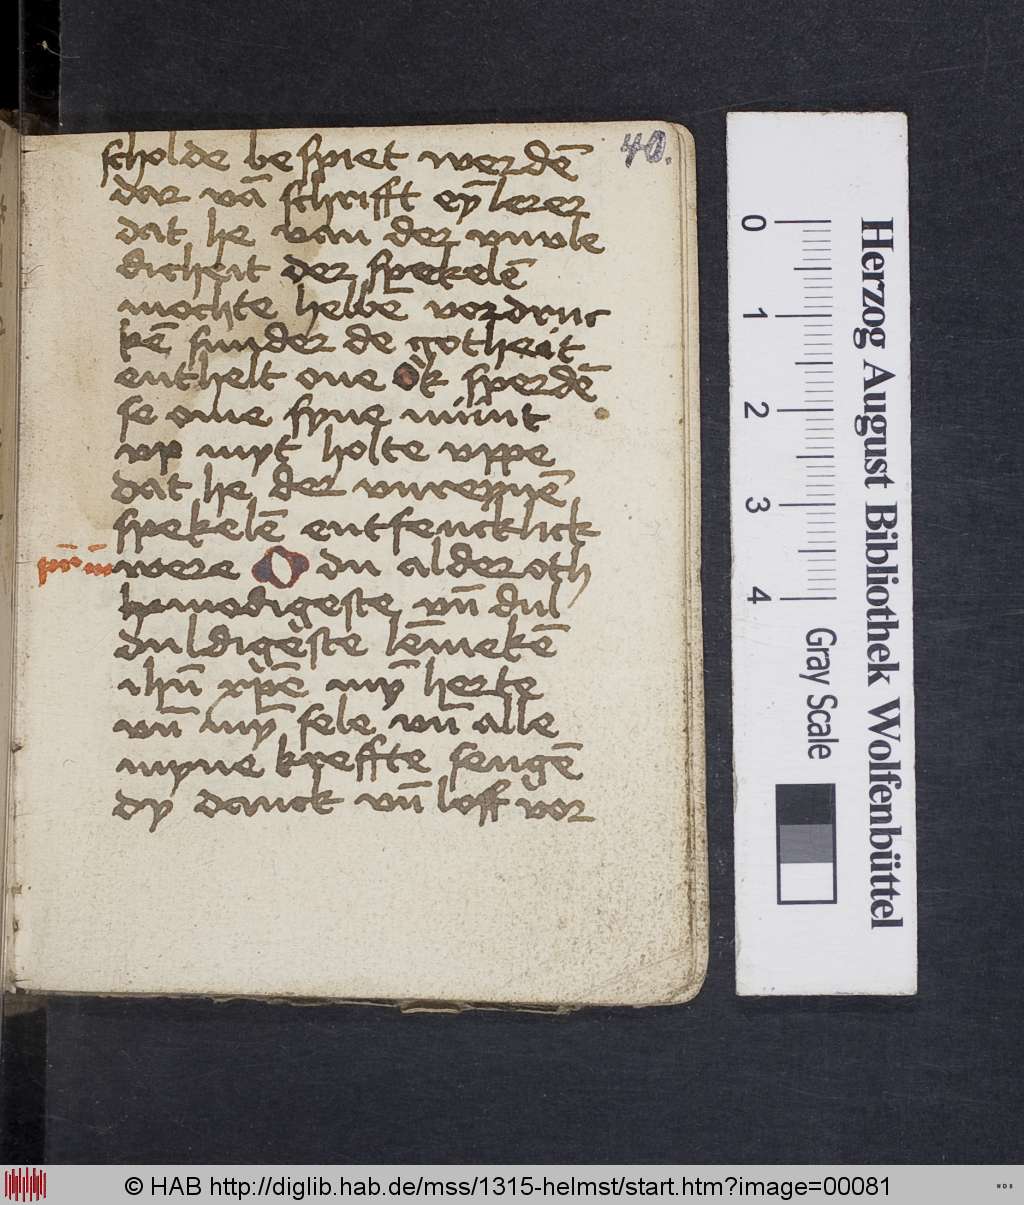 40.
scholde bespiet werdē
dar vā schrifft eȳ lerer
dat he van der vnvle
dicheit der spekelē
mochte hebbē vordruc
kē sunder de gotheit
enthelt one Ok sperdē
se ome syne munt
vp myt holte vppe
dat he der vnreynē
spekelē entfencklick
pr̄ nr̄ were O du alder oth
hmodigeste vn̄ dul
duldigeste lēmekē
ihū xp̄ē mȳ herte
vn̄ mȳ sele vn̄ alle
myne kreffte sengē
dy danck vn̄ loff vor
0
1
2
3
4
Gray Scale
Herzog August Bibliothek Wolfenbüttel
© HAB http://diglib.hab.de/mss/1315-helmst/start.htm?image=00081